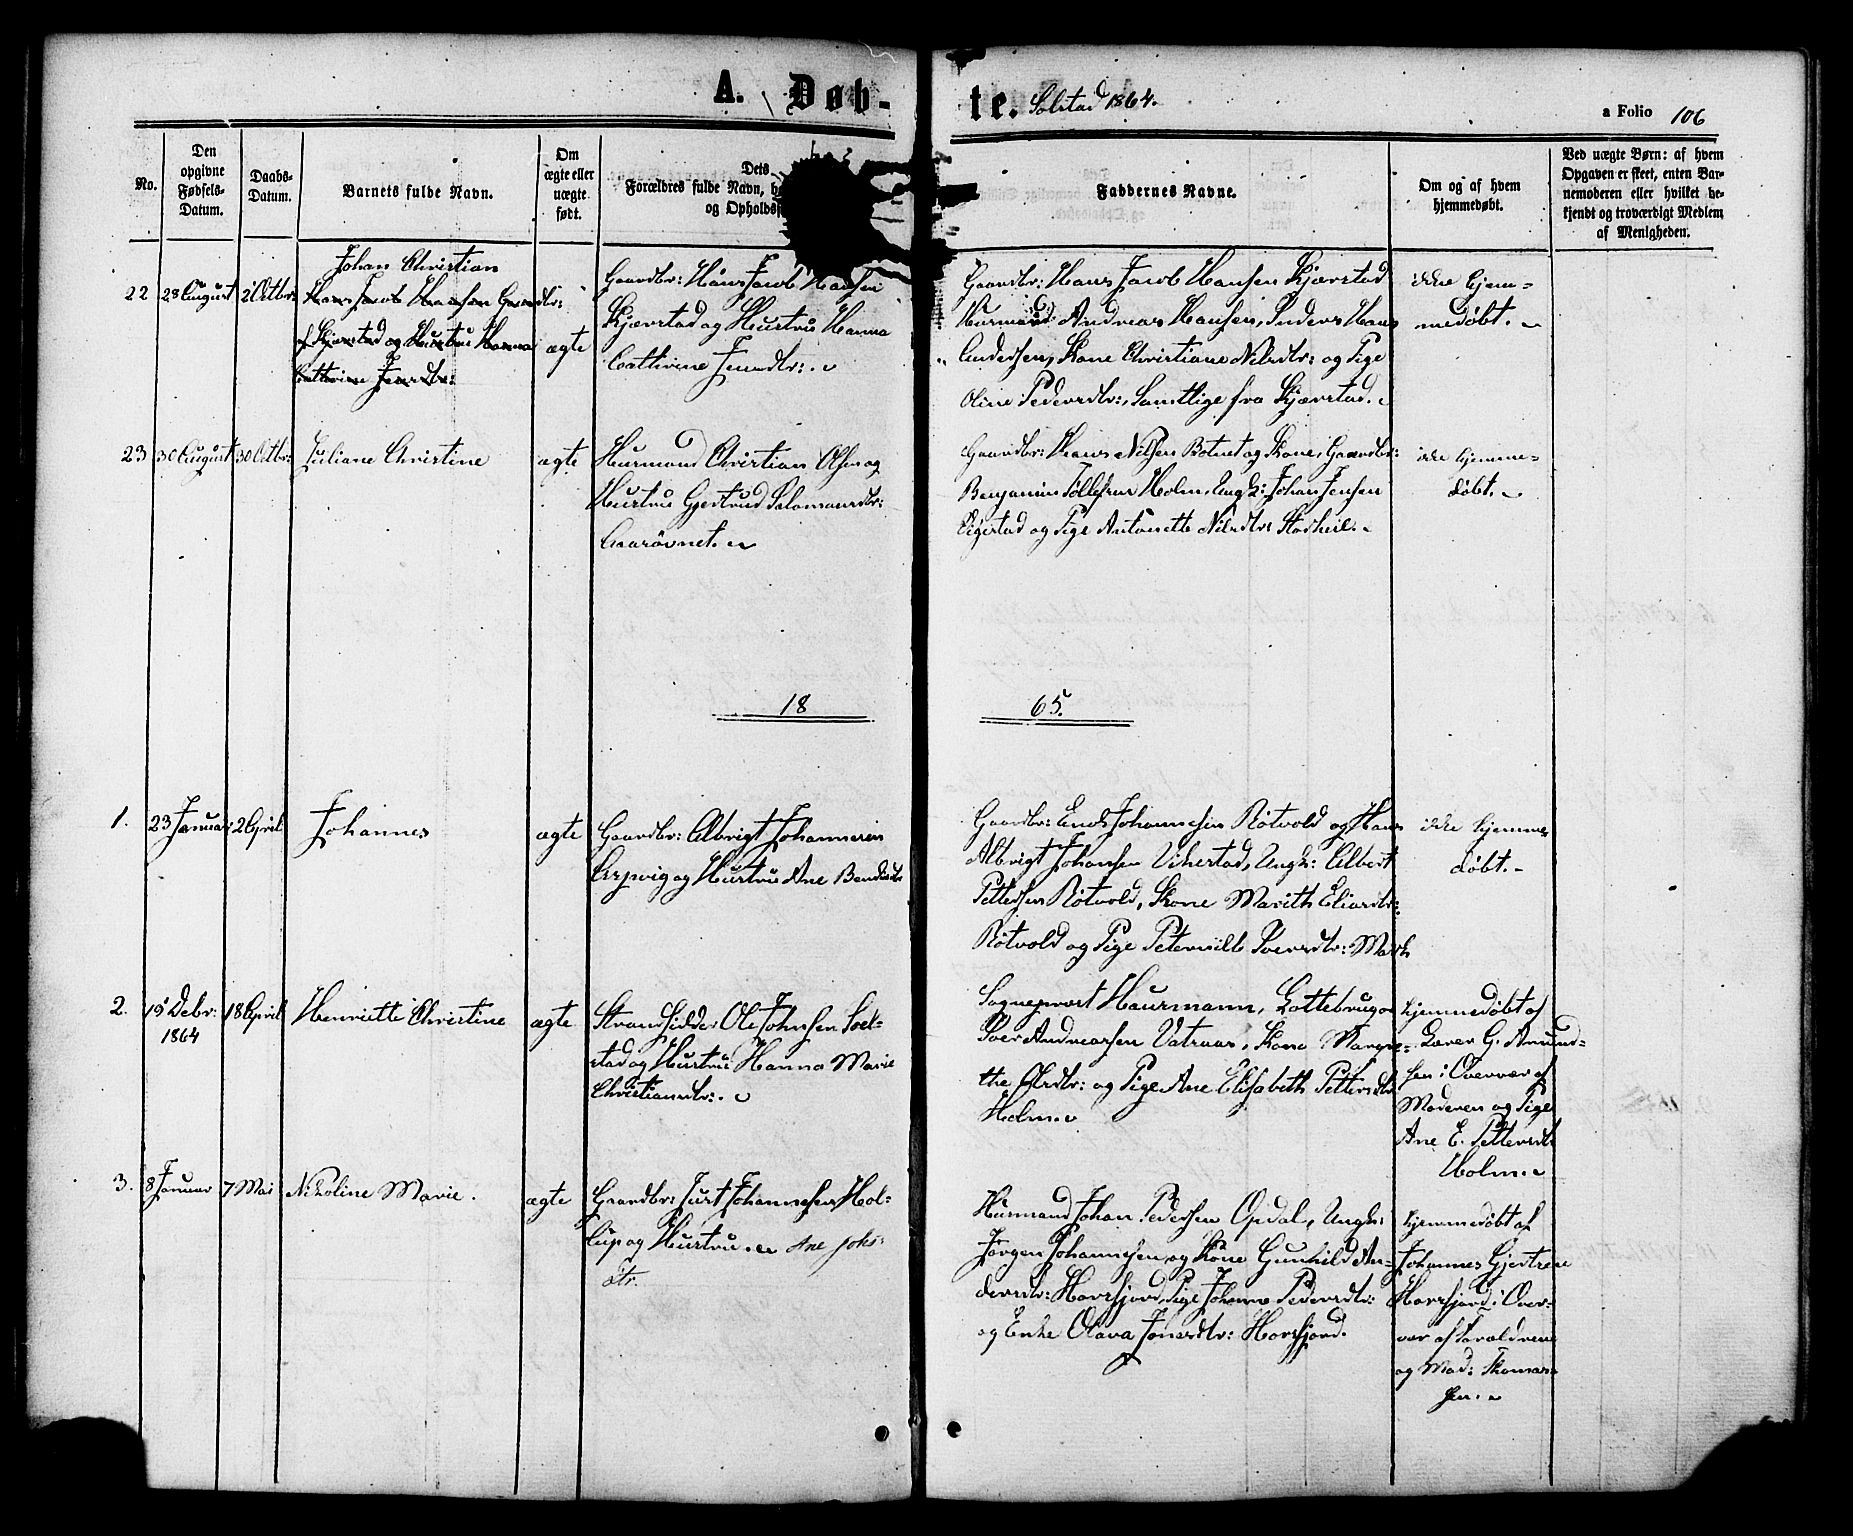 A. Døb-
te. Solstad 1864.
a Folio 106
No.
Den opgivne Fødsels-Datum.
Daabs-Datum.
Barnets fulde Navn.
Om ægte eller uægte født.
Dets
Forældres fulde Navn,
og Opholds
Faddernes Navne.
Om og af hvem hjemmedøbt.
Ved uægte Børn: af hvem Opgaven er skeet, enten Barnemoderen eller hvilket bekjendt og troværdigt Medlem af Menigheden.
22
28 August
2 Octbr:
Johan Christian
Hans Jacob Hansen Gaardbr:
Skjærstad og Hustru Hanna
Cathrine Jensdtr:
ægte
Gaardbr: Hans Jacob Hansen
Skjærstad og Hustru Hanna
Cathrine Jensdtr:
Gaardbr: Hans Jacob Hansen Skjærstad
Husmænd: Andreas Hansen, Anders Hans
Andersen, Kone Christiane Nilsdtr: og Pige
Oline Pedersdtr:, Samtlige fra Skjærstad.
ikke hjem-
medøbt.
23
30 August
30 Octbr:
Juliane Christine
ægte
Husmand Christian Olsen og
Hustru Gjertrud Salamonsdtr:
Aarsøvnet.
Gaardbr: Hans Nilsen Botnet og Kone, Gaardbr:
Benjamin Tollefsen Holm, Ungk: Johan Jensen
og Pige Antonette Nilsdtr:
ikke hjemme-
døbt.
18
65.
1.
23 Januar:
2 April
Johannes
ægte
Gaardbr: Albrigt Johannesen
og Hustru Ane
Gaardbr: Johannesen Røtvold og Hans
Albrigt Johansen Vikestad, Ungk: Albert
Pettersen Røtvold, Kone Marith Eliasdtr:
Røtvold og Pige Peternille Mark
ikke hjemme-
døbt.
2.
15 Debr:
1864
18 April
Henriette Christine
ægte
Strandsidder Ole Johnsen Sol-
stad og Hustru Hanna Marie
Christiansdtr:
Sogneprest Heurmann, Lottebruger
Andreassen Vatnaas, Kone Margre-
the Olsdtr: og Pige Ane Elisabeth Pettersdtr
Holm.
hjemmedøbt af
Lærer G. Amund-
sen i Overvær af
Moderen og Pige
Ane E. Pettersdtr
Holm.
3.
8 Januar
7 Mai
Nikoline Marie.
ægte
Gaardbr: Just Johannesen Hol-
lup og Hustru Ane Johs:
dtr.
Husmand Johan Pedersen Opdal, Ungk:
Jørgen Johannesen og Kone Gunhild An-
dersdtr: Horsfjord, Pige Johanna Pedersdtr:
og Enke Olava Jonsdtr: Horsfjord.
hjemmedøbt af
Johannes
Horsfjord i Over-
vær af Forældrene
og Mad: Thomas-
sen.